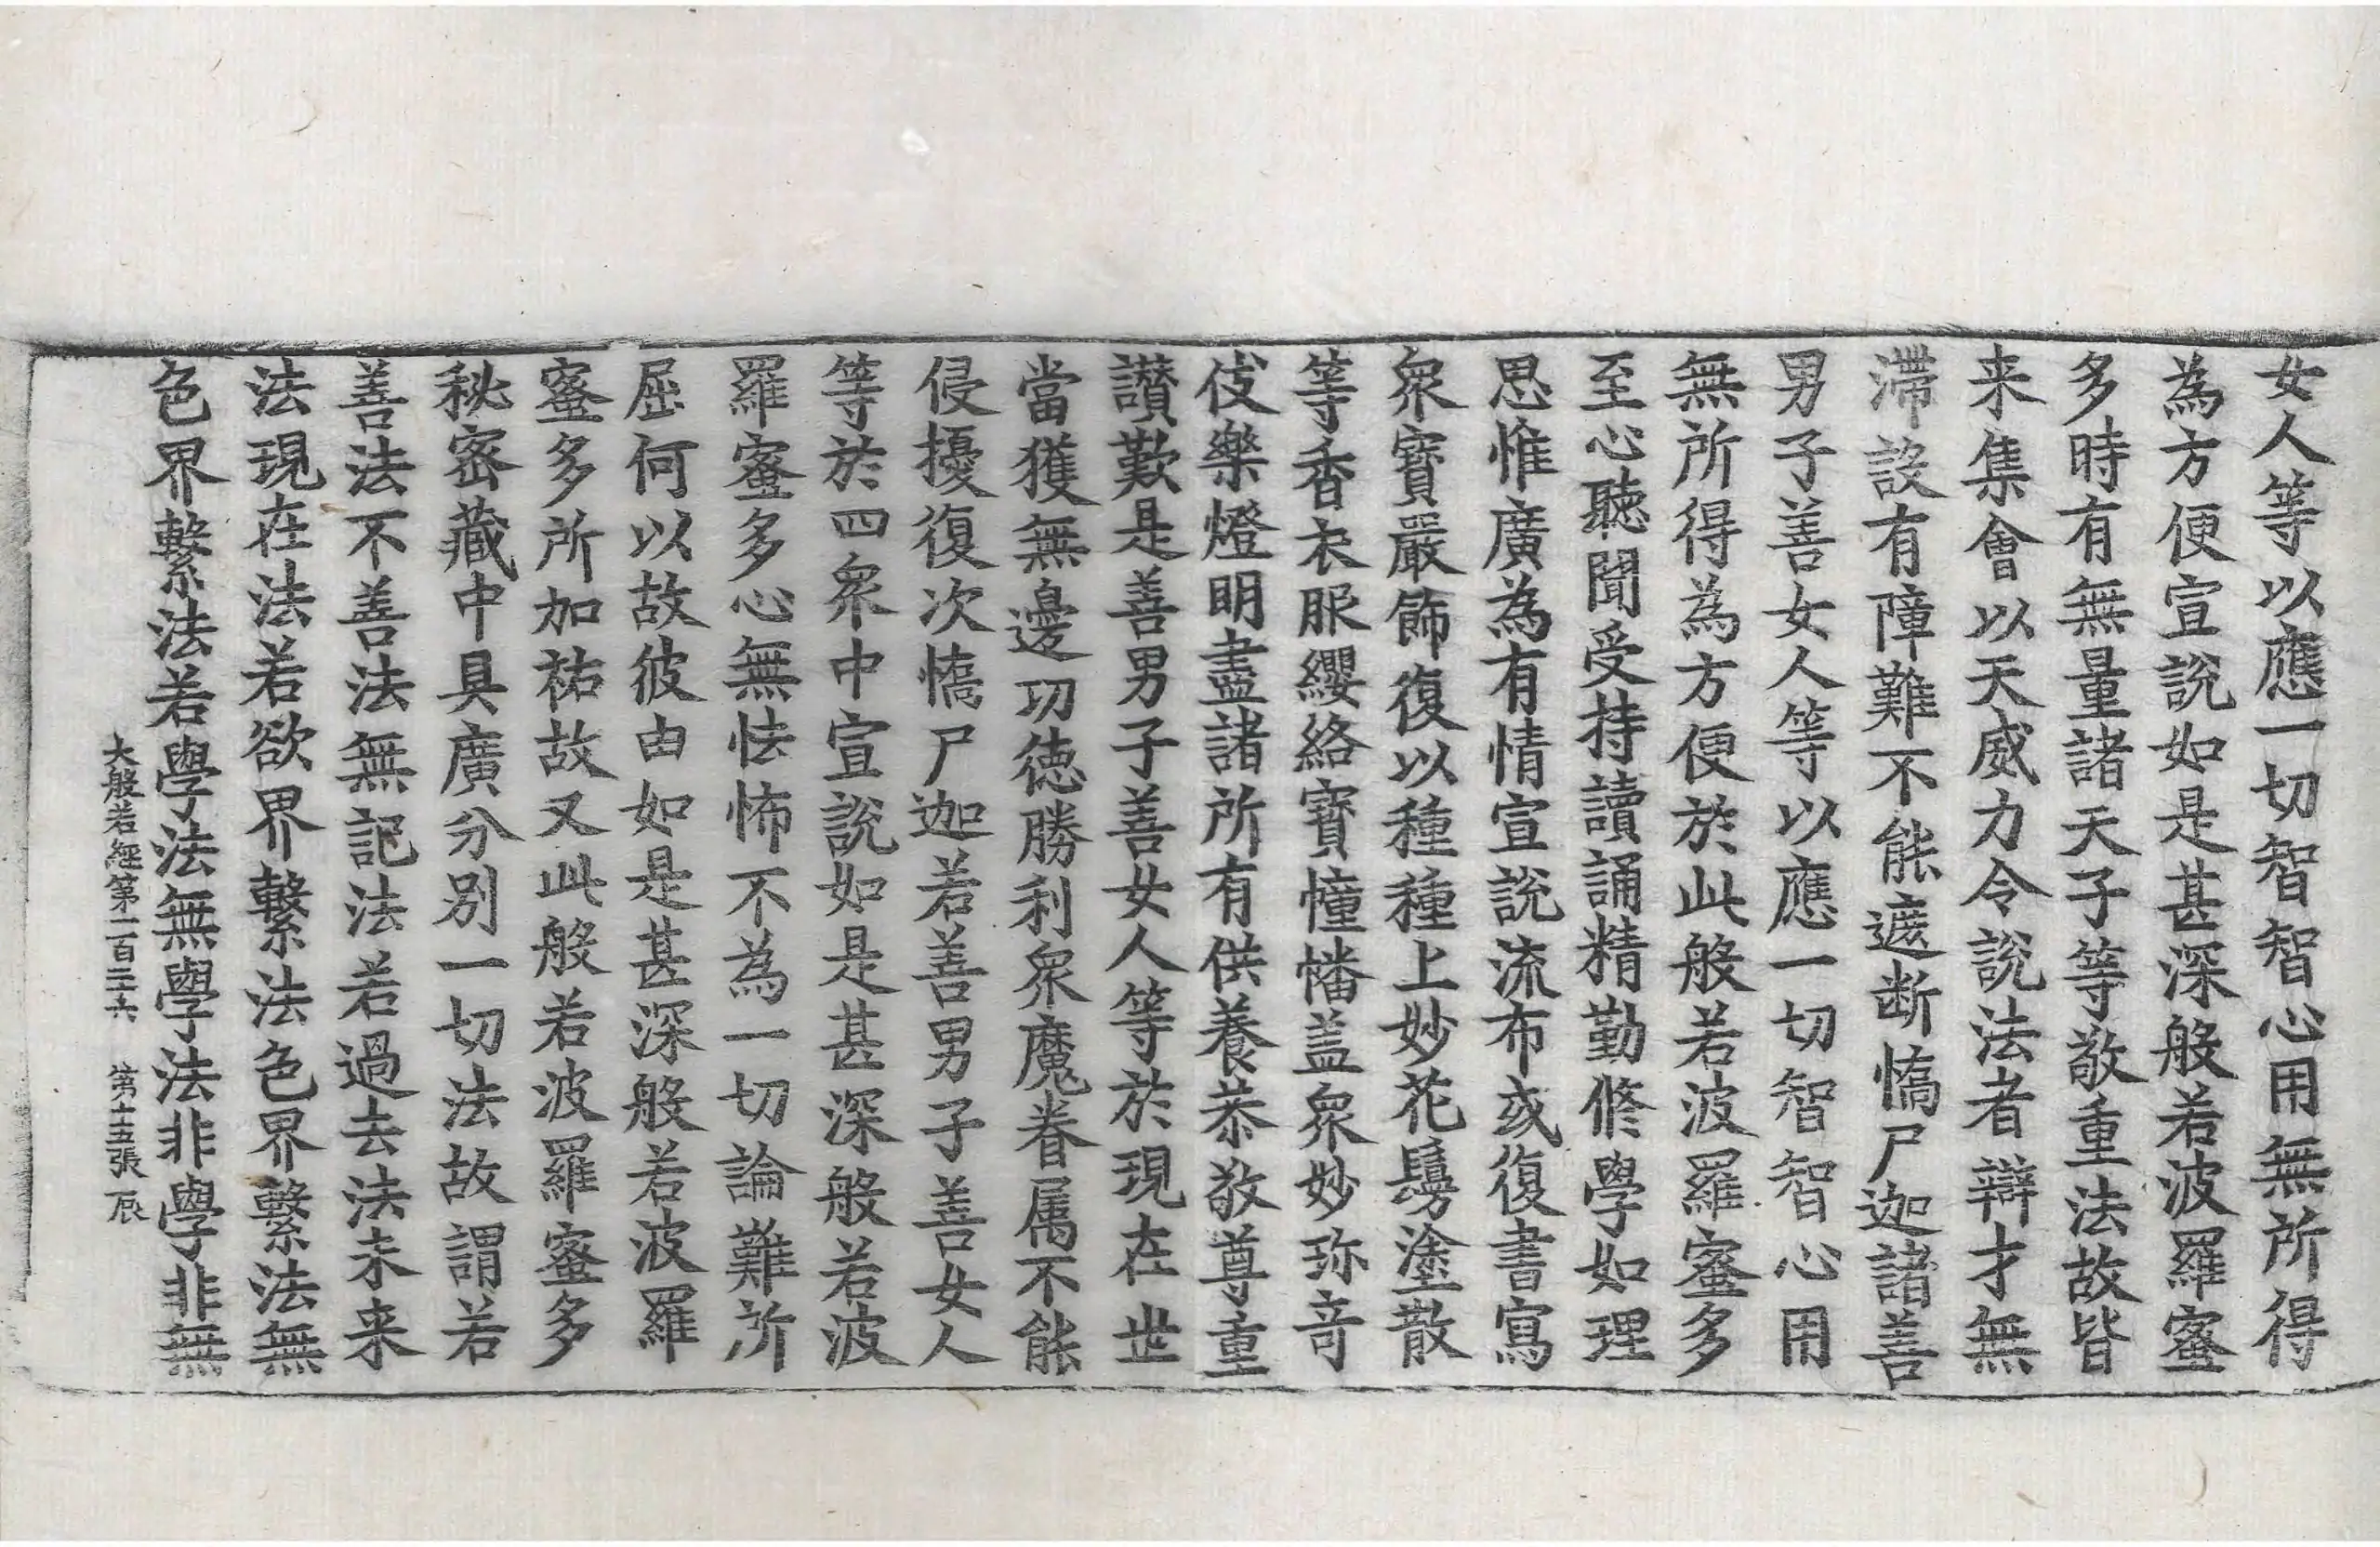 女人等以應一切智智心用無所得
為方便宣說如是甚深般若波羅蜜
多時有無量諸天子等敬重法故皆
来集會以天威力令說法者辯才無
滯設有障難不能遮断憍尸迦諸善
男子善女人等以應一切智智心用
無所得為方便於此般若波羅蜜多
至心聽聞受持讀誦精勤修學如理
思惟廣為有情宣說流布或復書寫
衆寶嚴飾復以種種上妙花鬘塗散
等香衣服纓絡寶幢幡盖衆妙珎竒
伎樂燈明盡諸所有供養恭敬尊重
讃歎是善男子善女人等於現在世
當獲無邊功德勝利衆魔眷属不能
侵擾復次憍尸迦若善男子善女人
等於四衆中宣說如是甚深般若波
羅蜜多心無怯怖不為一切論難所
屈何以故彼由如是甚深般若波羅
蜜多所加祐故又此般若波羅蜜多
秘密藏中具廣分別一切法故謂若
善法不善法無記法若過去法未来
法現在法若欲界繫法色界繫法無
色界繫法若學法無學法非學非無
大般若經第一百二十六 第十五張 辰